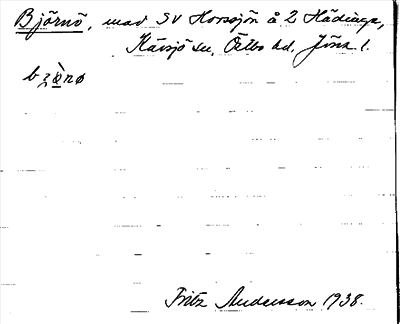 Björnö, mad SV Horssjön å 2 Hädinge,
Kävsjö sn, Östbo hd. Jönk l.
bzὼnø
Fritz Andersson 1938.